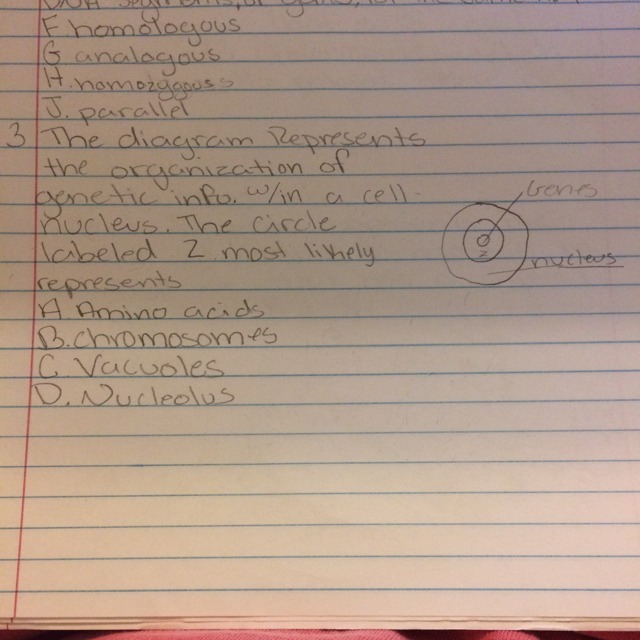 DNA segments, or genes, for the same
F homologous
G analogous
H. homozygous
J. parallel
3 The diagram Represents
the organization of
genetic info. w/in a cell
nucleus. The circle
labeled Z most likely
represents
Genes
Z
nucleus
A Amino acids
B. chromosomes
C. Vacuoles
D. Nucleolus